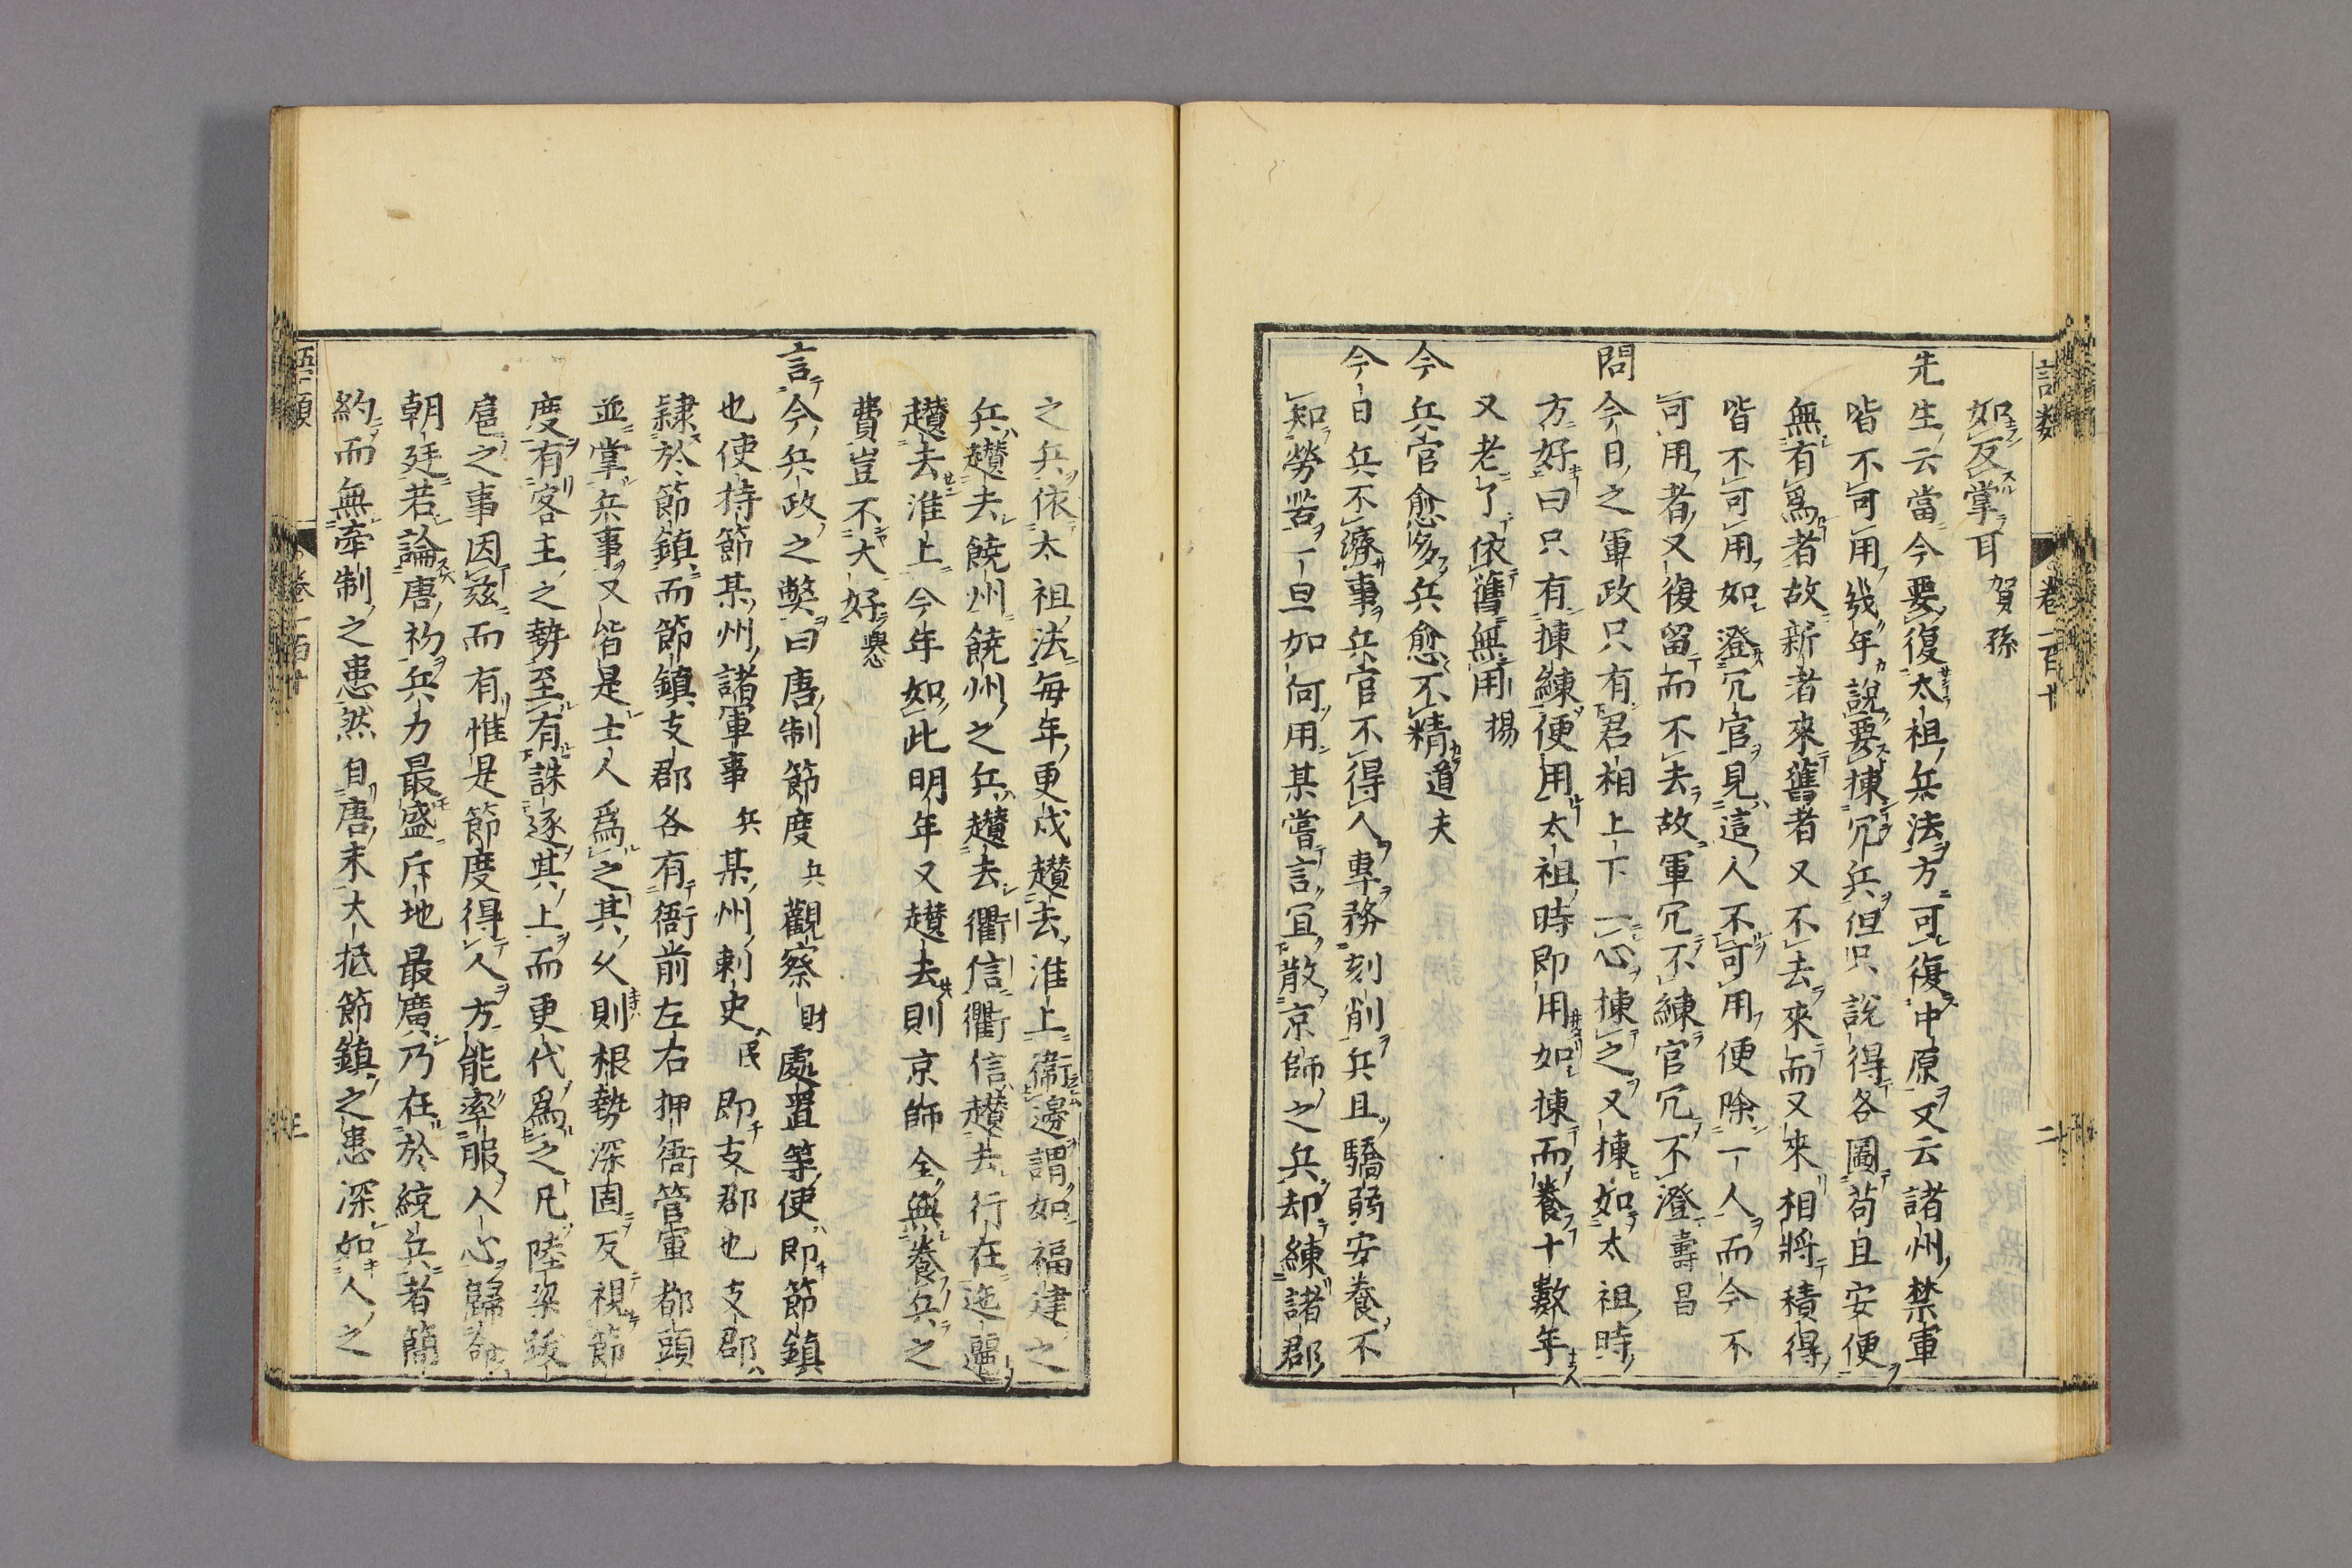 語類
卷一百十
二
如反掌耳賀孫
先生云當今要復太祖兵法方可復中原又云諸州禁軍
皆不可用幾年說要揀冗兵但只說得各圖苟且安便
無有爲者故新者來舊者又不去來而又來相將積得
皆不可用如澄冗官見這人不可用便除一人而今不
可用者又復留而不去故軍冗不練官冗不澄壽昌
問今日之軍政只有君相上下一心揀之又揀如太祖時
方好曰只有揀練便用太祖時即用如揀而養十數年
又老了依舊無用揚
今兵官愈多兵愈不精道夫
今日兵不濟事兵官不得人專務刻削兵且驕弱安養不
知勞苦一旦如何用某嘗言宜散京師之兵却練諸郡
之兵依太祖法每年更戍趲去淮上衞邊謂如福建之
兵趲去饒州饒州之兵趲去衢信衢信趲去行在迤邐
趲去淮上今年如此明年又趲去則京師全無養兵之
費豈不大好㬊
言今兵政之弊曰唐制節度兵觀察財處置等使即節鎮
也使持節某州諸軍事兵某州刺史民即支郡也支郡
隸於節鎮而節鎮支郡各有衙前左右押衙管軍都頭
並掌兵事又皆是士人爲之其久則根勢深固反視節
度有客主之勢至有誅逐其上而更代爲之凡陸梁跋
扈之事因茲而有惟是節度得人方能率服人心歸命
朝廷若論唐初兵力最盛斥地最廣乃在於統兵者簡
約而無牽制之患然自唐末大抵節鎮之患深如人之
語類
卷一百十
三